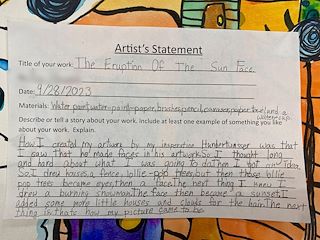 Artist's Statement
Title of your work: The Eruption Of The Sun Face
Date: 9/28/2023
Materials: Water paint, water-paint-paper, brushes, pencil, canvas, paper towel, and a water-cup.
Describe or tell a story about your work. Include at least one example of something you like
about your work. Explain.
How I created my artwork by my insperation Hundertwasser was that
I saw that he made faces in his artwork. So I thought long
and hard about what I was going to do. Then I got an idea.
So I drew houses, a fence, lollie-pop trees, but then those lollie
pop trees became eyes, then a face. The next thing I knew I
drew a burning snowman. The face then became a sunset. I
added some more little houses and clouds for the hair. The next
thing is, thats how my picture came to be.